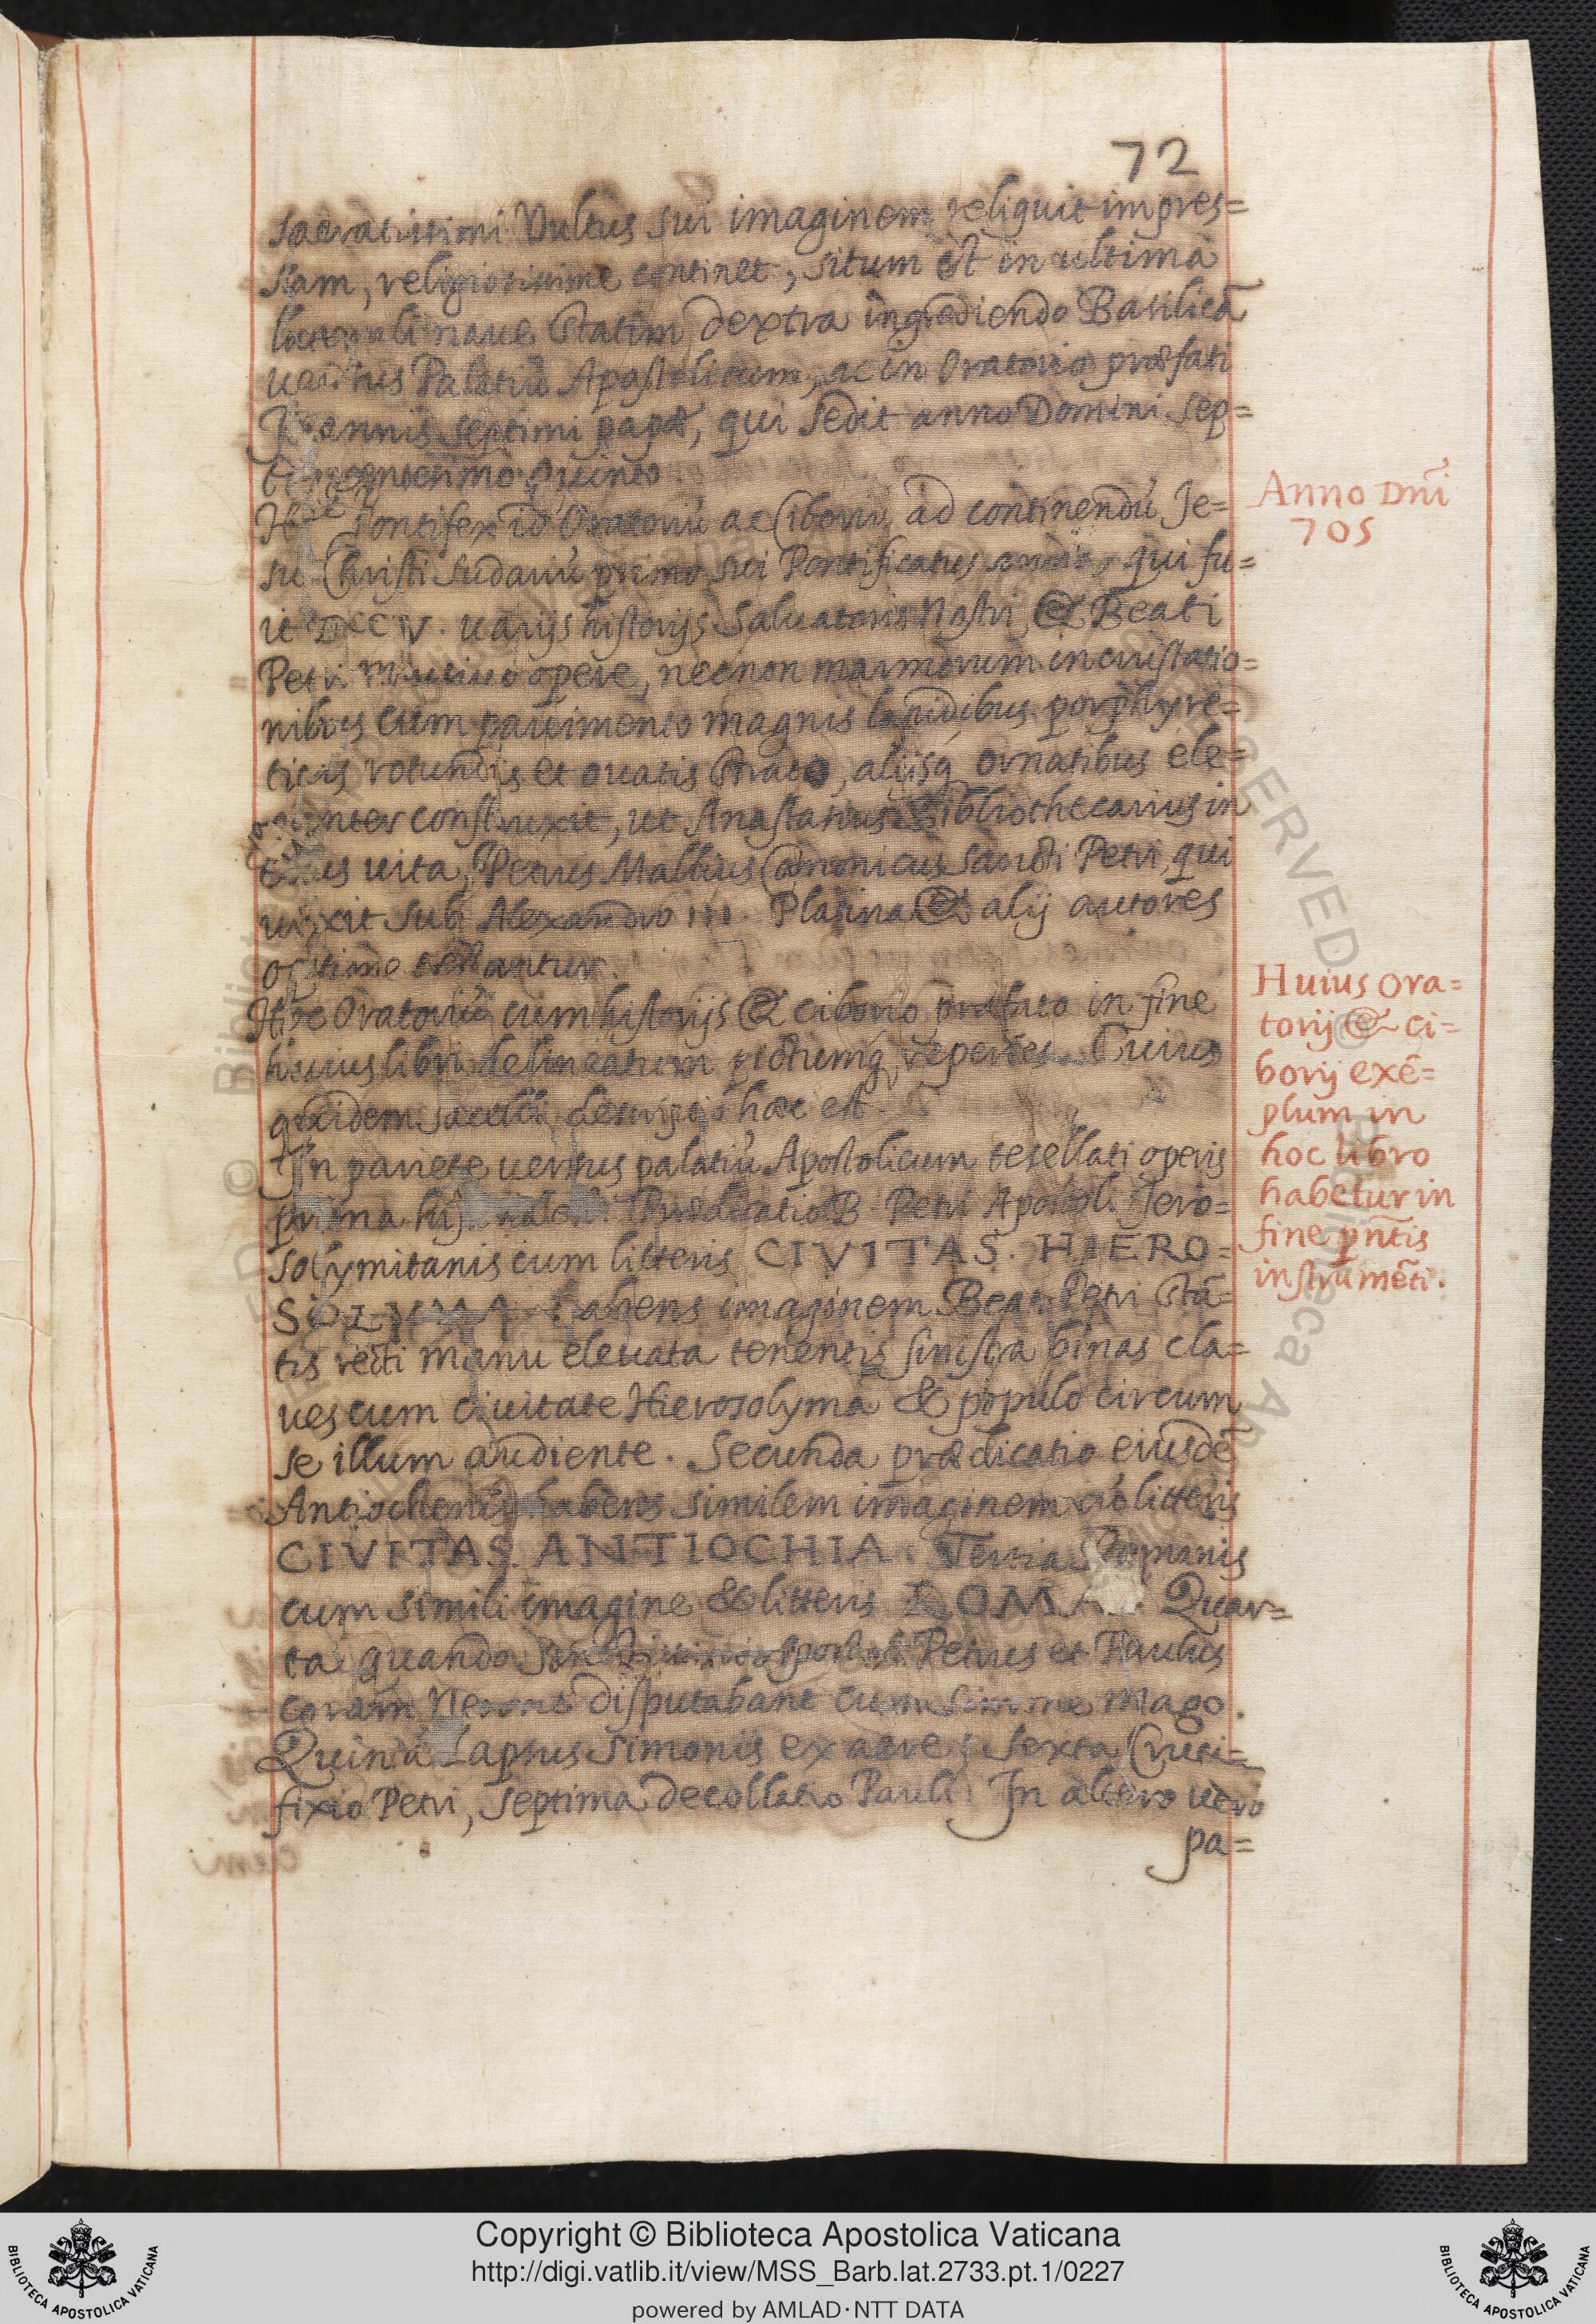 72
sacratissimi Vultus sui imaginem reliquit impres=
sam, religiosissime continet, situm est in ultima
laterali naue statim dextra ingrediendo Basilicã
uersus Palatiũ Apostolicum, ac in Oratorio præfati
Ioannis septimi papæ, qui sedit anno Domini sep=
tingentesimo quinto.
Hic Pontifex id Oratoriũ ac Ciboriũ ad continendũ Je=
su Christi sudariũ primo sui Pontificatus anno, qui fu=
it DCCV. uarijs historijs Saluatoris Nostri & Beati
Petri Musiuo opere, necnon marmorum incrustatio=
nibus cum pauimento magnis lapidibus porphyre=
ticis rotundis et ouatis strato, alijsq ornatibus ele=
ganter construxit, ut Anastasius Bibliothecarius in
eius uita, Petrus Mallius Canonicus Sancti Petri, qui
uixit sub Alexandro III. Platina & alij autores
optime testantur.
Hoc Oratoriũ cum historijs & ciborio præfato in fine
huius libri delineatum pictumq reperies. Cuius
quidem sacelli descriptio hæc est.
In pariete uersus palatiũ Apostolicum tesellati operis
prima Prædicatio B. Petri Apostoli Jero=
solymitanis cum litteris CIVITAS. HIERO=
SOLYMA habens imaginem Beati Petri stã=
tis recti manu eleuata tenentis sinistra binas cla=
ues cum ciuitate Hierosolyma & populo circum
se illum audiente. Secunda prædicatio eiusdẽ
Antiochenis habens similem imaginem cũ litteris
CIVITAS. ANTIOCHIA. Tertia Romanis
cum simili imagine & litteris ROMA. Quar=
ta quando Sancti Apostoli Petrus et Paulus
coram Nerone disputabant cum Simone mago.
Quinta Lapsus Simonis ex aere; Sexta Cruci=
fixio Petri, Septima decollatio Pauli. In altero uero
pa=
Anno Dñi
705
Huius ora=
torij & ci=
borij exẽ=
plum in
hoc libro
habetur in
fine pñtis
instrumẽti.
Copyright © Biblioteca Apostolica Vaticana
http://digi.vatlib.it/view/MSS_Barb.lat.2733.pt.1/0227
powered by AMLAD·NTT DATA
BIBLIOTECA APOSTOLICA VATICANA
BIBLIOTECA APOSTOLICA VATICANA